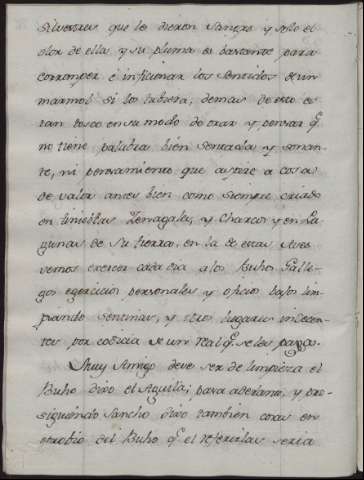 silvestres que le dieron sangre y solo el
olor de ella, y su pluma es bastante para
corromper e inficionar los sentidos de un
marmol si los tubiera; demas de esto es
tan tosco en su modo de orar y pensar q.
no tiene palabra bien sentada, y sonan-
te, ni pensamiento que aspire a cosas
de valor antes bien como siempre criado
en tinieblas y Charcos y en La
gunas de su tierra, en la de estas Aves
vemos exercer cada dia a los Buhos Galle-
gos egercicios personales y oficios bajos lim
piando sentinas, y otros lugares indecen-
tes por codicia de un real q. se les paga.
Muy Amigo deve ser de limpieza el
Buho dijo el Aguila; pasa adelante, y pro-
siguiendo Sancho dijo tambien cosas en
oprobio del Buho q. el referirlas seria